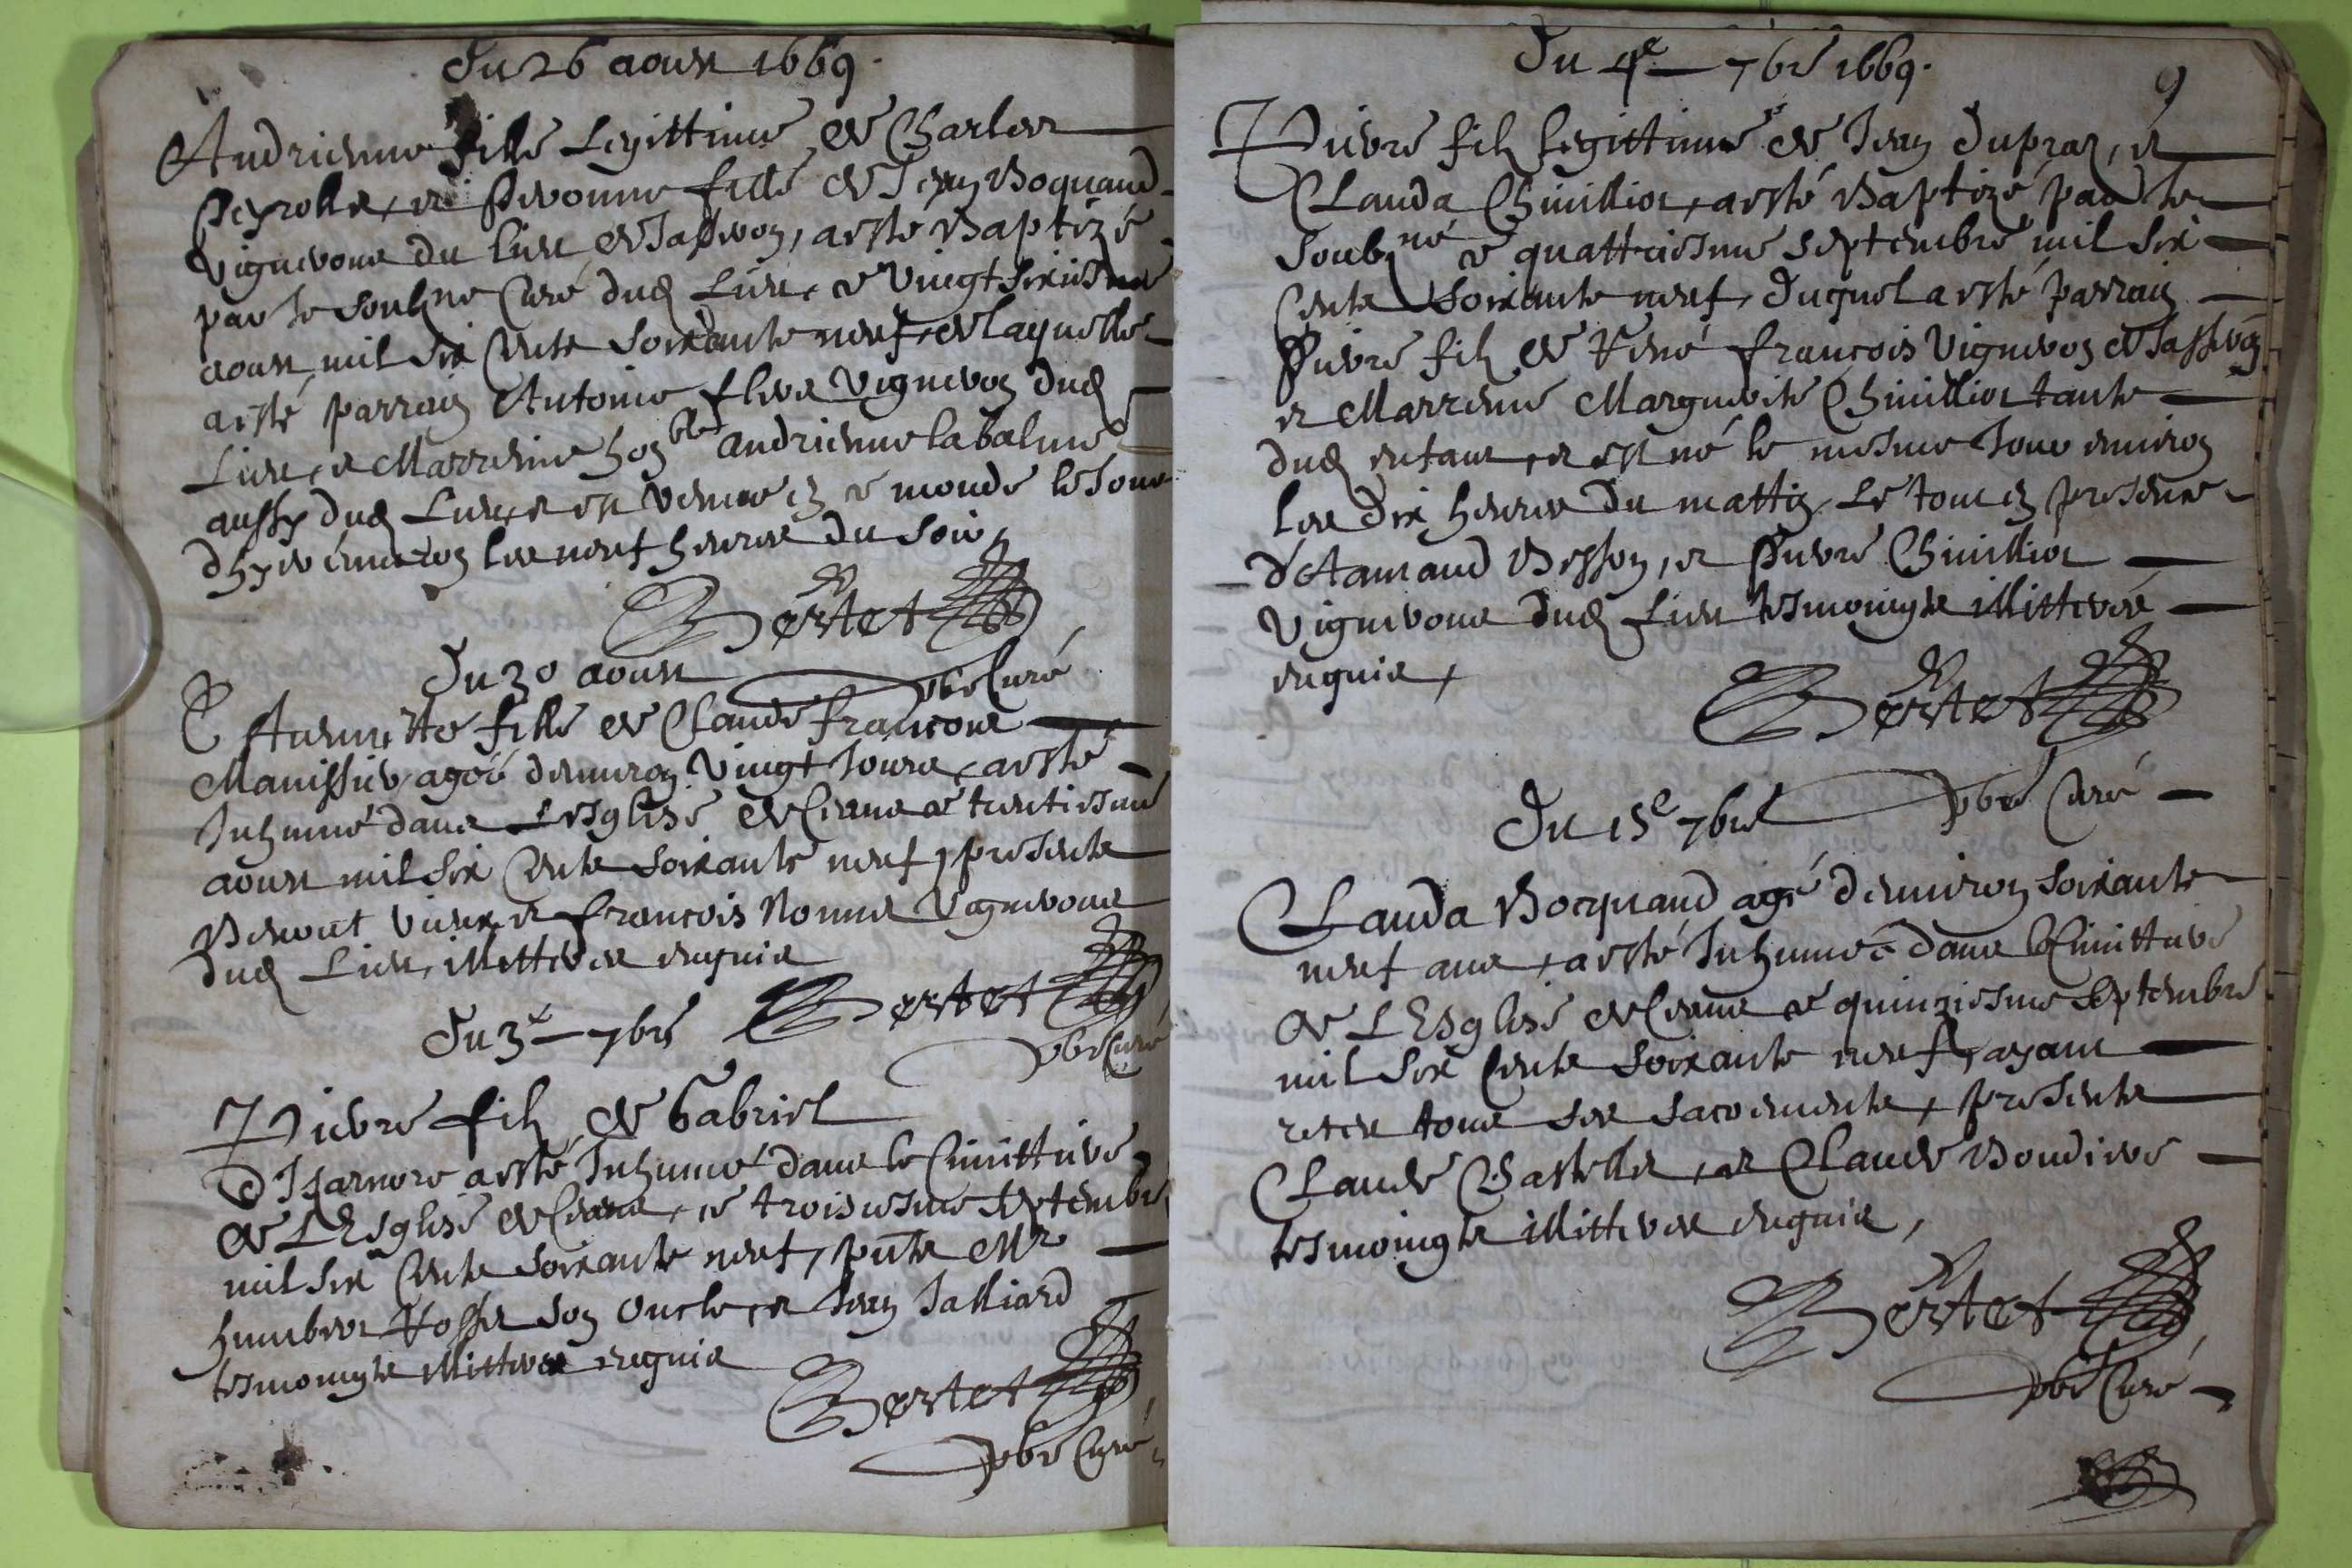 Du 26 aoust 1669.
Andrienne fille Legittime de Charles
Peyrolle, et Pevonne fille de Jean Boquand
Vigneron du lieu de Jasseron, a esté Baptizé
par le soubz.né Curé dud Lieu, ce Vingt sixiesme
aoust mil six Cents soixante neuf, de laquelle
a esté parrain Antoine fleve Vigneron dud
Lieu, et Marrenne hon.ble andrienne labalme
aussy dud Lieu, et est Venue en ce monde le Jour
d'hyer environ les neuf heures du soir,
Bertet
pbre Curé
Du 30 aoust
Annette fille de Claude françois
Manissier agée d'environ Vingt Jours, a esté
Inhumé dans L'Esglise de Ceans ce trentiesme
aoust mil six Cents soixante neuf, presents
Benoit Vieux et françois Nonme Vignerons
dud Lieu, illitteres enquis
Bertet
pbre Curé
Du 3e 7bre
Pierre filz de Gabriel
D'Isarnore a esté Inhumé dans le Cimittiere
de L'Esglise de Ceans, ce troisiesme Septembre
mil six Cents soixante neuf, pnts Mr
humbert Rosset son oncle, et Jean Jalliard
tesmoingts illitteres enquis
Bertet
pbre Curé
Du 4e 7bre 1669.
9
Pierre filz legittime de Jean Dupraz, et
Clauda Chivilliot, a esté Baptizé par le
soubz.né ce quattriesme septembre mil six
Cents soixante neuf, duquel a esté parrain
Pierre filz de René françois Vigneron de Jasseron
et Marrenne Marguerite Chivilliot tante
dud enfant, et est né le mesme Jour environ
les dix heures du mattin, le tout en presence
d'Aamaud Besson, et Pierre Chivilliot
Vignerons dud Lieu tesmoingts illitteres
enquis,
Bertet
pbre Curé
Du 15e 7bre
Clauda Bocquand agé d'environ soixante
neuf ans, a esté Inhumée dans le Cimittiere
de L'Esglise de Ceans ce quinziesme Septembre
mil six Cents soixante neuf, ayant
receu tous ses sacrements, presents
Claude Chastelles, et Claude Boudiere
tesmoingts illitteres enquis,
Bertet
pbre Curé